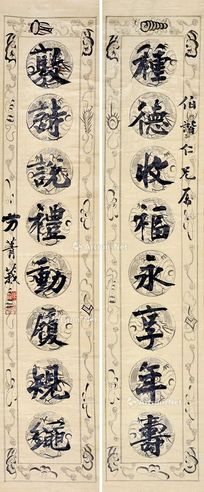 伯諧仁兄屬
種德收福永享年壽
敦詩說禮動履規繩
方菁莪